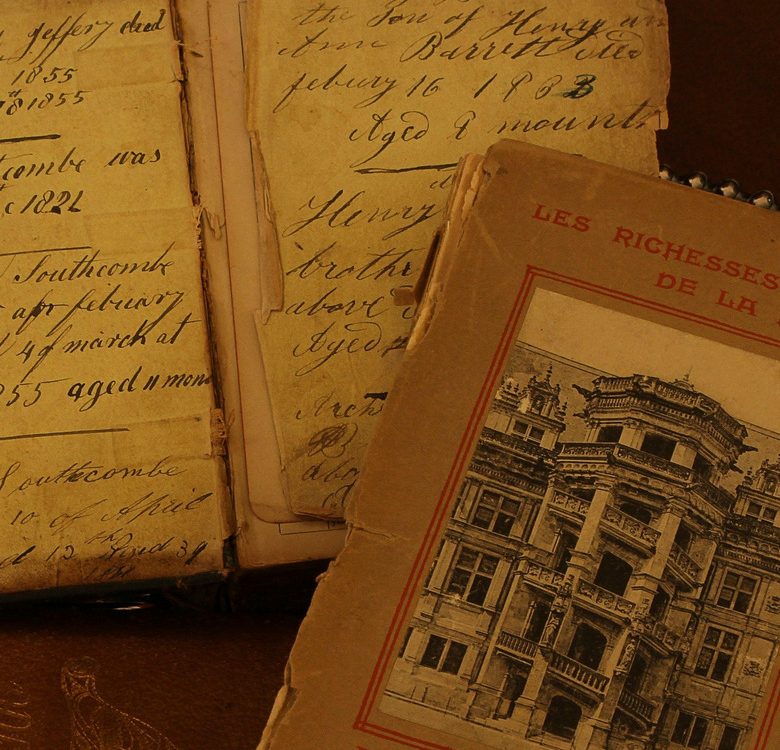 Jeffery died
1855
18 1855
combe was
1821
Southcombe
apr febuary
4 of march at
855 aged 11 mon
Southcombe
10 of April
12
the Son of Henry an
Ann Barrett died
febury 16 1833
Aged 9 mounth
Henry
brothe
above
Aged
Arch
abo
LES RICHESSES
DE LA